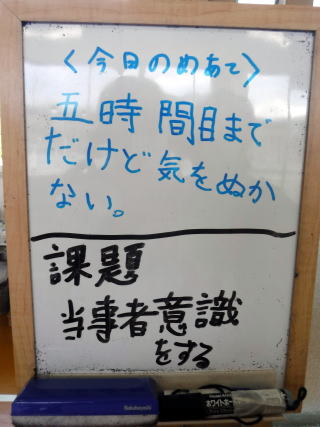 〈今日のめあて〉
五時間目まで
だけど気をぬか
ない。
課題
当事者意識
をする
ホワイトボー